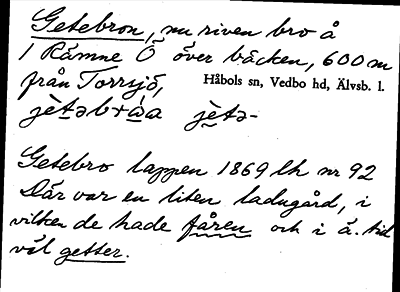 Getebron, nu riven bro å
1 Rämne Ö över bäcken, 600 m
från Torrsjö, Håbols sn, Vedbo hd, Älvsb. l.
Getebro lappen 1869 lh nr 92
Där var en liten ladugård, i
vilken de hade fåren och i ä. tid
väl getter.